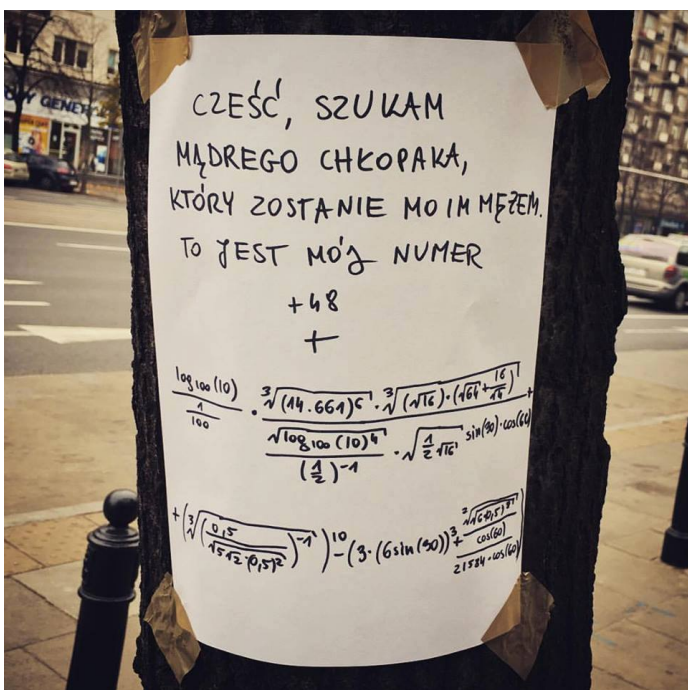 CZEŚĆ, SZUKAM
MĄDREGO CHŁOPAKA,
KTÓRY ZOSTANIE MOIM MĘŻEM.
TO JEST MÓJ NUMER
+48
+
log100(10) / (1/100) · ∛((14.661)^6) · ∛((√16)·(√64 + 16/14)) / (√(log100(10)^4) / (1/2)^-1 · √(1/2 √16)^(sin(90)·cos(60))) +
+ (∛((0,5 / √(512·(0,5)^2))^-1))^10 - (3·(6sin(90))^3 +